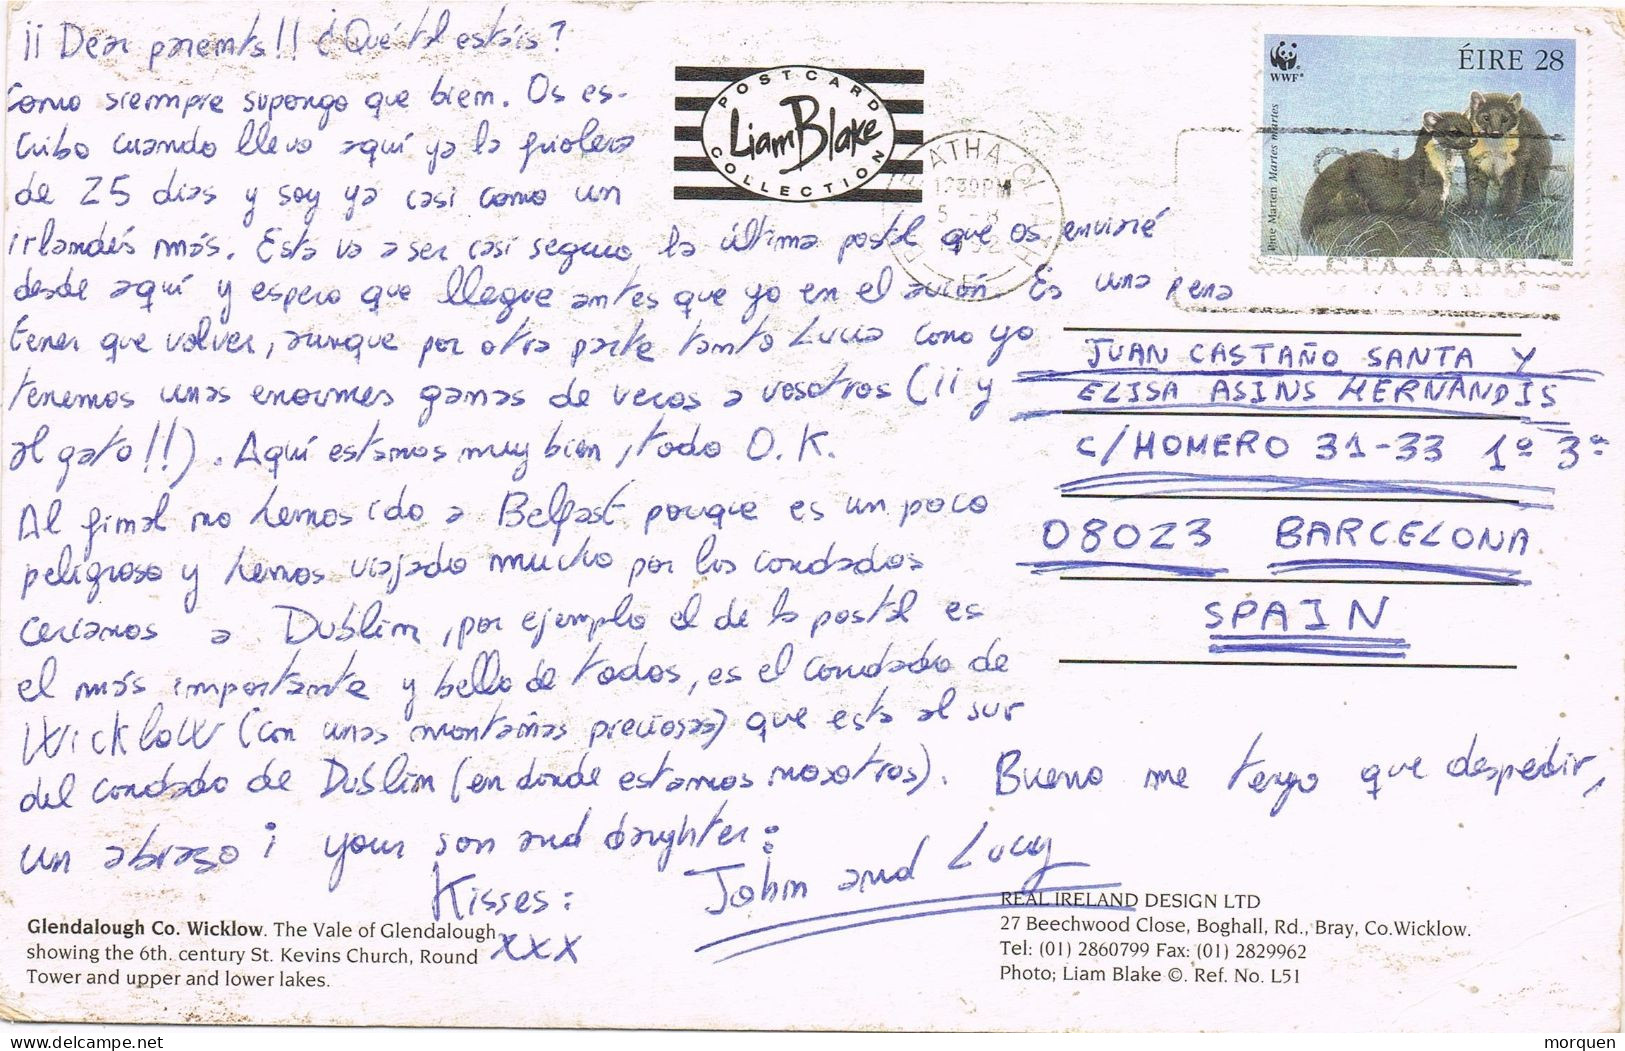 ¡¡ Dear parents!! ¿Qué tal estáis?
Como siempre supongo que bien. Os es-
cribo cuando llevo aquí ya la friolera
de 25 días y soy ya casi como un
irlandés más. Esta va a ser casi seguro la última postal que os enviaré
desde aquí y espero que llegue antes que yo en el avión. Es una pena
tener que volver, aunque por otra parte tanto Lucía como yo
tenemos unas enormes ganas de veros a vosotros (¡¡ y
al gato!!). Aquí estamos muy bien, todo O.K.
Al final no hemos ido a Belfast porque es un poco
peligroso y hemos viajado mucho por los condados
cercanos a Dublin, por ejemplo el de la postal es
el más importante y bello de todos, es el condado de
Wicklow (con unas montañas preciosas) que está al sur
del condado de Dublin (en donde estamos nosotros). Bueno me tengo que despedir,
un abrazo ¡ your son and daughter:
Kisses: John and Lucy
xxx
POSTCARD
Liam Blake
COLLECTION
ATHA CLIATH
1230PM
5 - 8
WWF®
ÉIRE 28
Pine Marten Martes martes
JUAN CASTAÑO SANTA Y
ELISA ASINS HERNANDIS
C/HOMERO 31-33 1º 3ª
08023 BARCELONA
SPAIN
Glendalough Co. Wicklow. The Vale of Glendalough
showing the 6th. century St. Kevins Church, Round
Tower and upper and lower lakes.
REAL IRELAND DESIGN LTD
27 Beechwood Close, Boghall, Rd., Bray, Co.Wicklow.
Tel: (01) 2860799 Fax: (01) 2829962
Photo; Liam Blake ©. Ref. No. L51
morquen